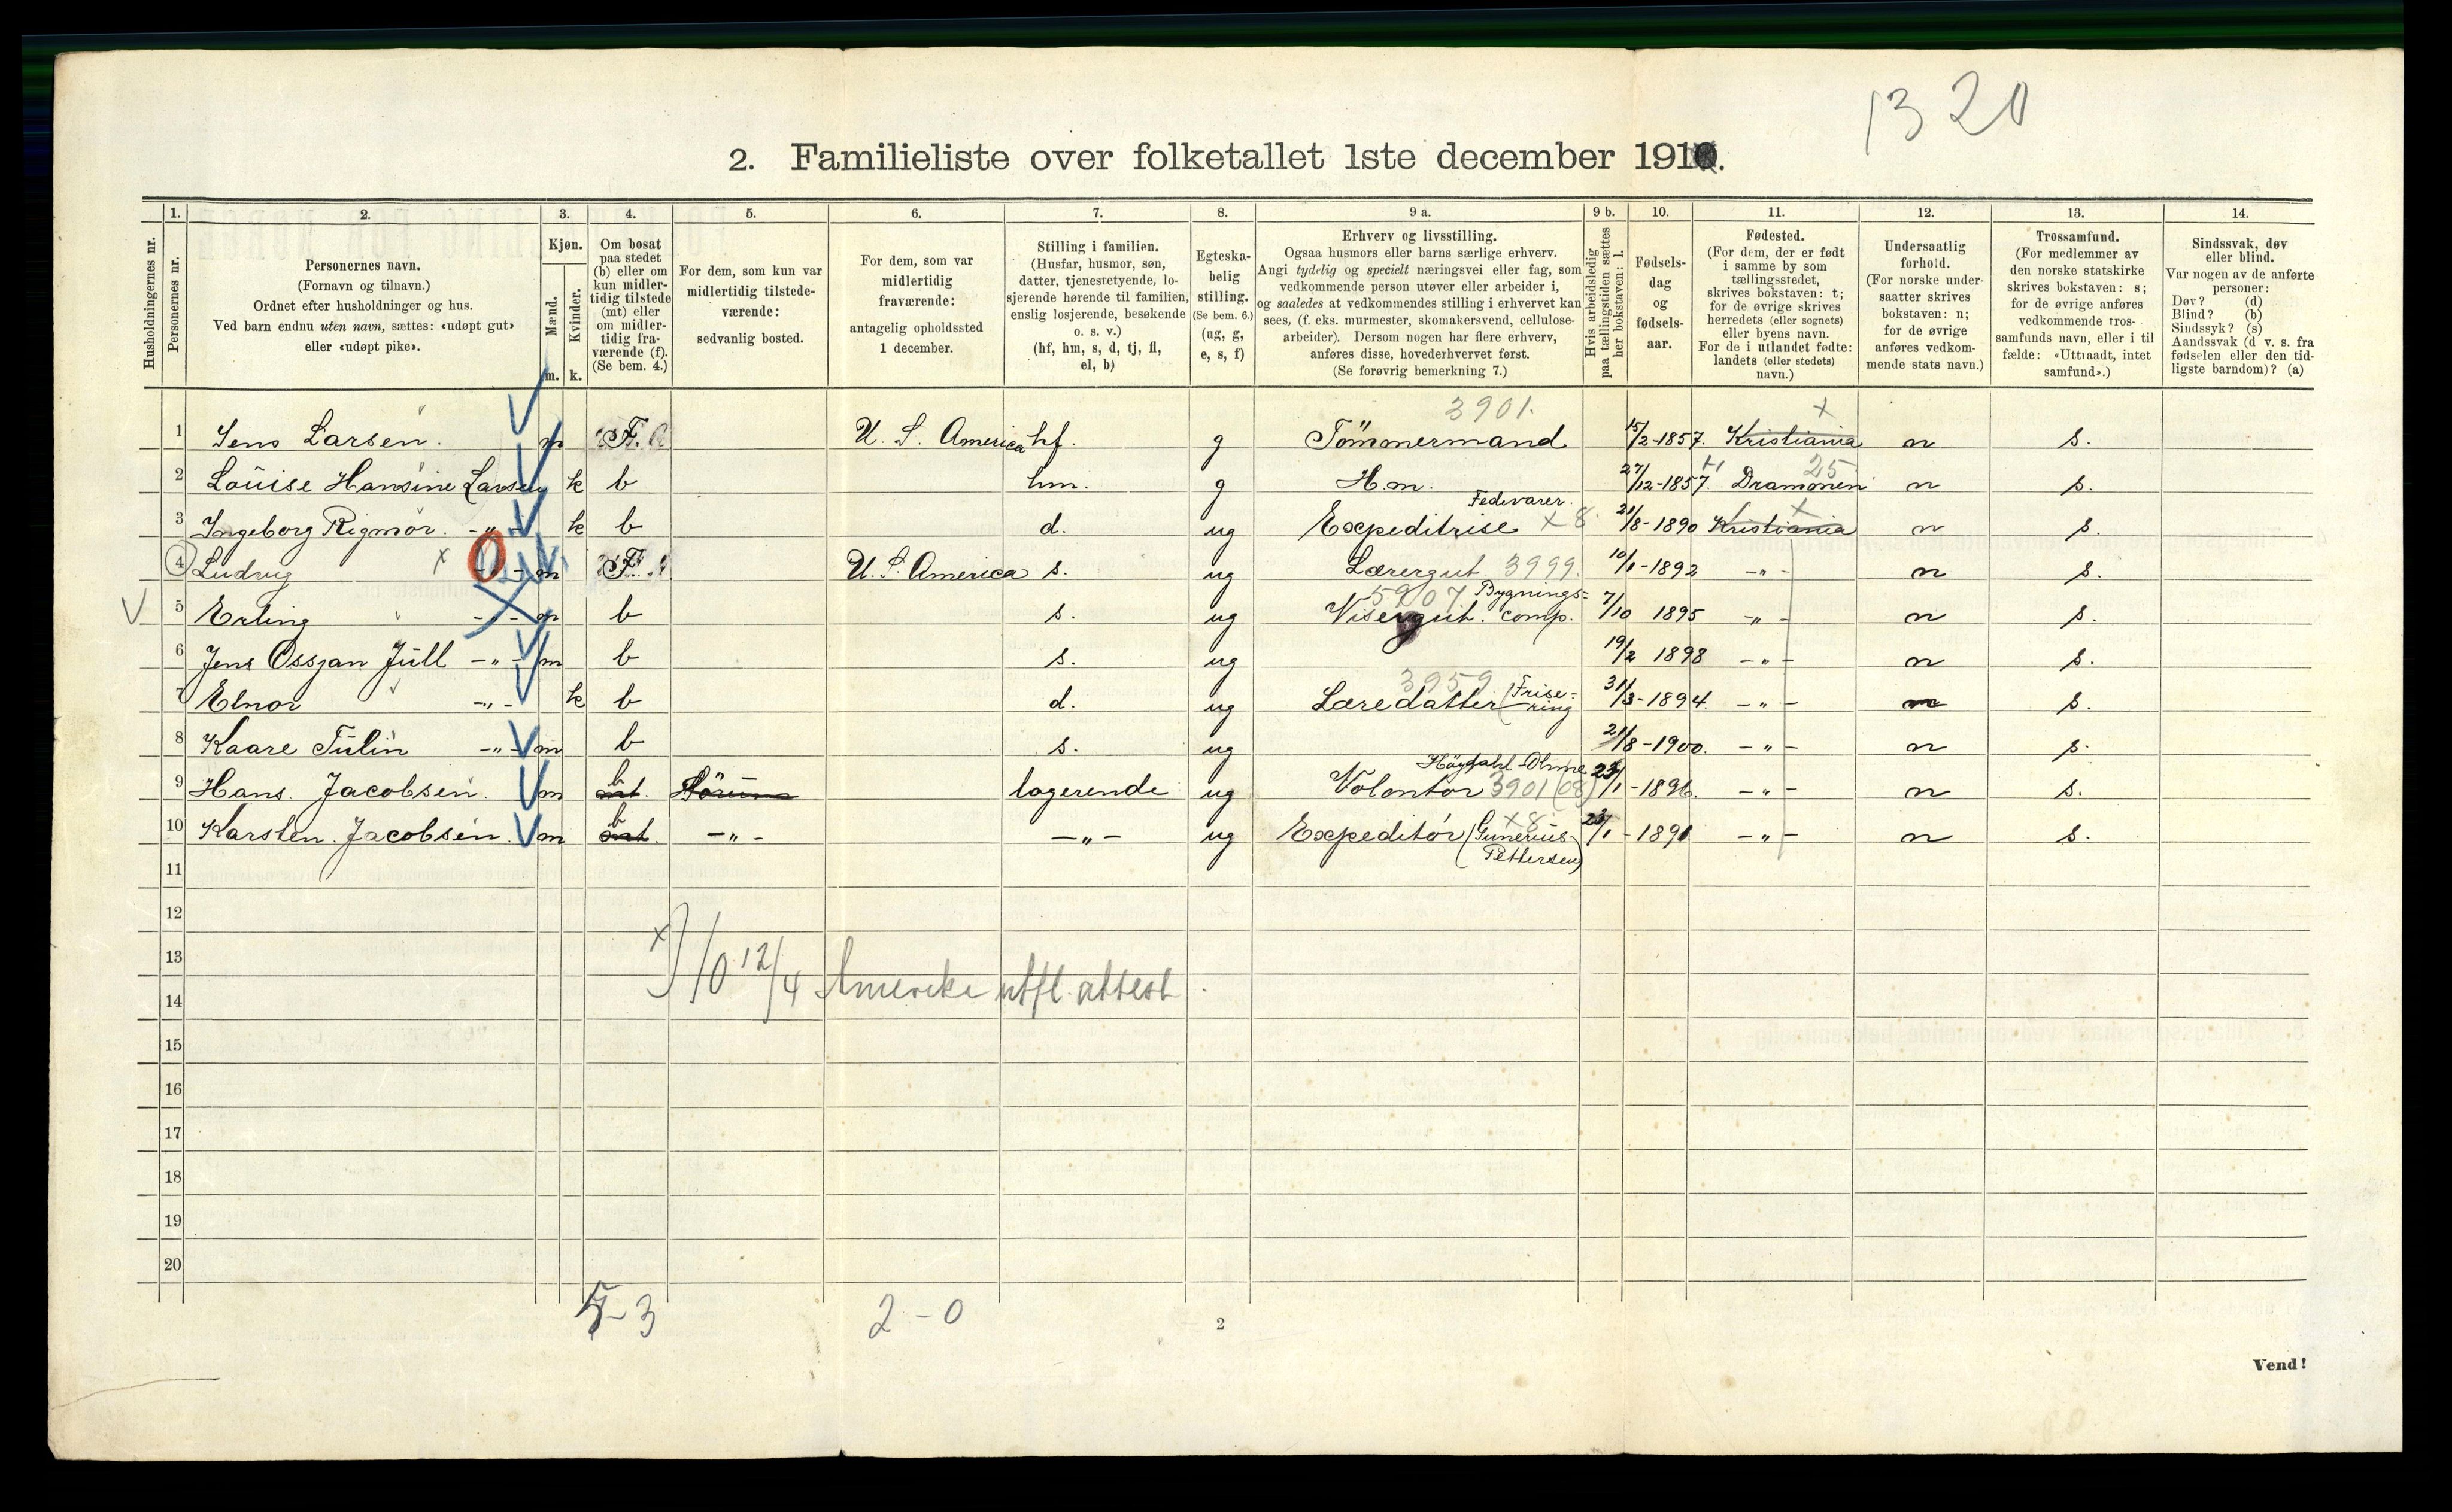 1320
2. Familieliste over folketallet 1ste december 1910.
1. 2. 3. 4. 5. 6. 7. 8. 9 a. 9 b. 10. 11. 12. 13. 14.
Husholdningernes nr.
Personernes nr.
Personernes navn.
(Fornavn og tilnavn.)
Ordnet efter husholdninger og hus.
Ved barn endnu uten navn, sættes: «udøpt gut»
eller «udøpt pike».
Kjøn.
Mænd.
Kvinder.
m. k.
Om bosat
paa stedet
(b) eller om
kun midler-
tidig tilstede
(mt) eller
om midler-
tidig fra-
værende (f).
(Se bem. 4.)
For dem, som kun var
midlertidig tilstede-
værende:
sedvanlig bosted.
For dem, som var
midlertidig
fraværende:
antagelig opholdssted
1 december.
Stilling i familien.
(Husfar, husmor, søn,
datter, tjenestetyende, lo-
sjerende hørende til familien,
enslig losjerende, besøkende
o. s. v.)
(hf, hm, s, d, tj, fl,
el, b)
Egteska-
belig
stilling.
(Se bem. 6.)
(ug, g,
e, s, f)
Erhverv og livsstilling.
Ogsaa husmors eller barns særlige erhverv.
Angi tydelig og specielt næringsvei eller fag, som
vedkommende person utøver eller arbeider i,
og saaledes at vedkommendes stilling i erhvervet kan
sees, (f. eks. murmester, skomakersvend, cellulose-
arbeider). Dersom nogen har flere erhverv,
anføres disse, hovederhvervet først.
(Se forøvrig bemerkning 7.)
Hvis arbeidsledig
paa tællingstiden sættes
her bokstaven: l.
Fødsels-
dag
og
fødsels-
aar.
Fødested.
(For dem, der er født
i samme by som
tællingsstedet,
skrives bokstaven: t;
for de øvrige skrives
herredets (eller sognets)
eller byens navn.
For de i utlandet fødte:
landets (eller stedets)
navn.)
Undersaatlig
forhold.
(For norske under-
saatter skrives
bokstaven: n;
for de øvrige
anføres vedkom-
mende stats navn.)
Trossamfund.
(For medlemmer av
den norske statskirke
skrives bokstaven: s;
for de øvrige anføres
vedkommende tros-
samfunds navn, eller i til
fælde: «Uttraadt, intet
samfund».)
Sindssvak, døv
eller blind.
Var nogen av de anførte
personer:
Døv? (d)
Blind? (b)
Sindssyk? (s)
Aandssvak (d v. s. fra
fødselen eller den tid-
ligste barndom)? (a)
3901. x
1 Jens Larsen. m F. U. S. America hf. g Tömmermand 15/2-1857. Kristiania n s.
25
2 Louise Hansine Larsen k b hm. g H.m. 27/12-1857. Drammen n s.
Fedevarer. x
3 Ingeborg Rigmor. -"- k b d. ug Expeditrise x 8 21/8-1890 Kristiania n s.
4 Ludvig x -"- m F. U. S. America s. ug Lærergut 3999. 10/1-1892 -"- n s.
5907 Bygnings=
5 Erling -"- m b s. ug Visergut. comp. 7/10 1895 -"- n s.
6 Jens Ossjan Jull -"- m b s. ug 19/2 1898 -"- n s.
3959
7 Elnor -"- k b d. ug Læredatter (Frise=ring 31/3-1894. -"- n s.
8 Kaare Tulin -"- m b s. ug 21/8-1900. -"- n s.
b
9 Hans. Jacobsen. m mt. logerende ug Volontør 3901 (08) 23/1-1896. -"- n s.
b x8
10 Karsten. Jacobsen. m mt. -"- -"- ug Expeditör (Gunerius 23/1-1891 -"- n s.
Pettersen)
11
12
x) 10 12/4 Amerika utfl. attest
13
14
15
16
17
18
19
20
5-3 2-0
2
Vend!